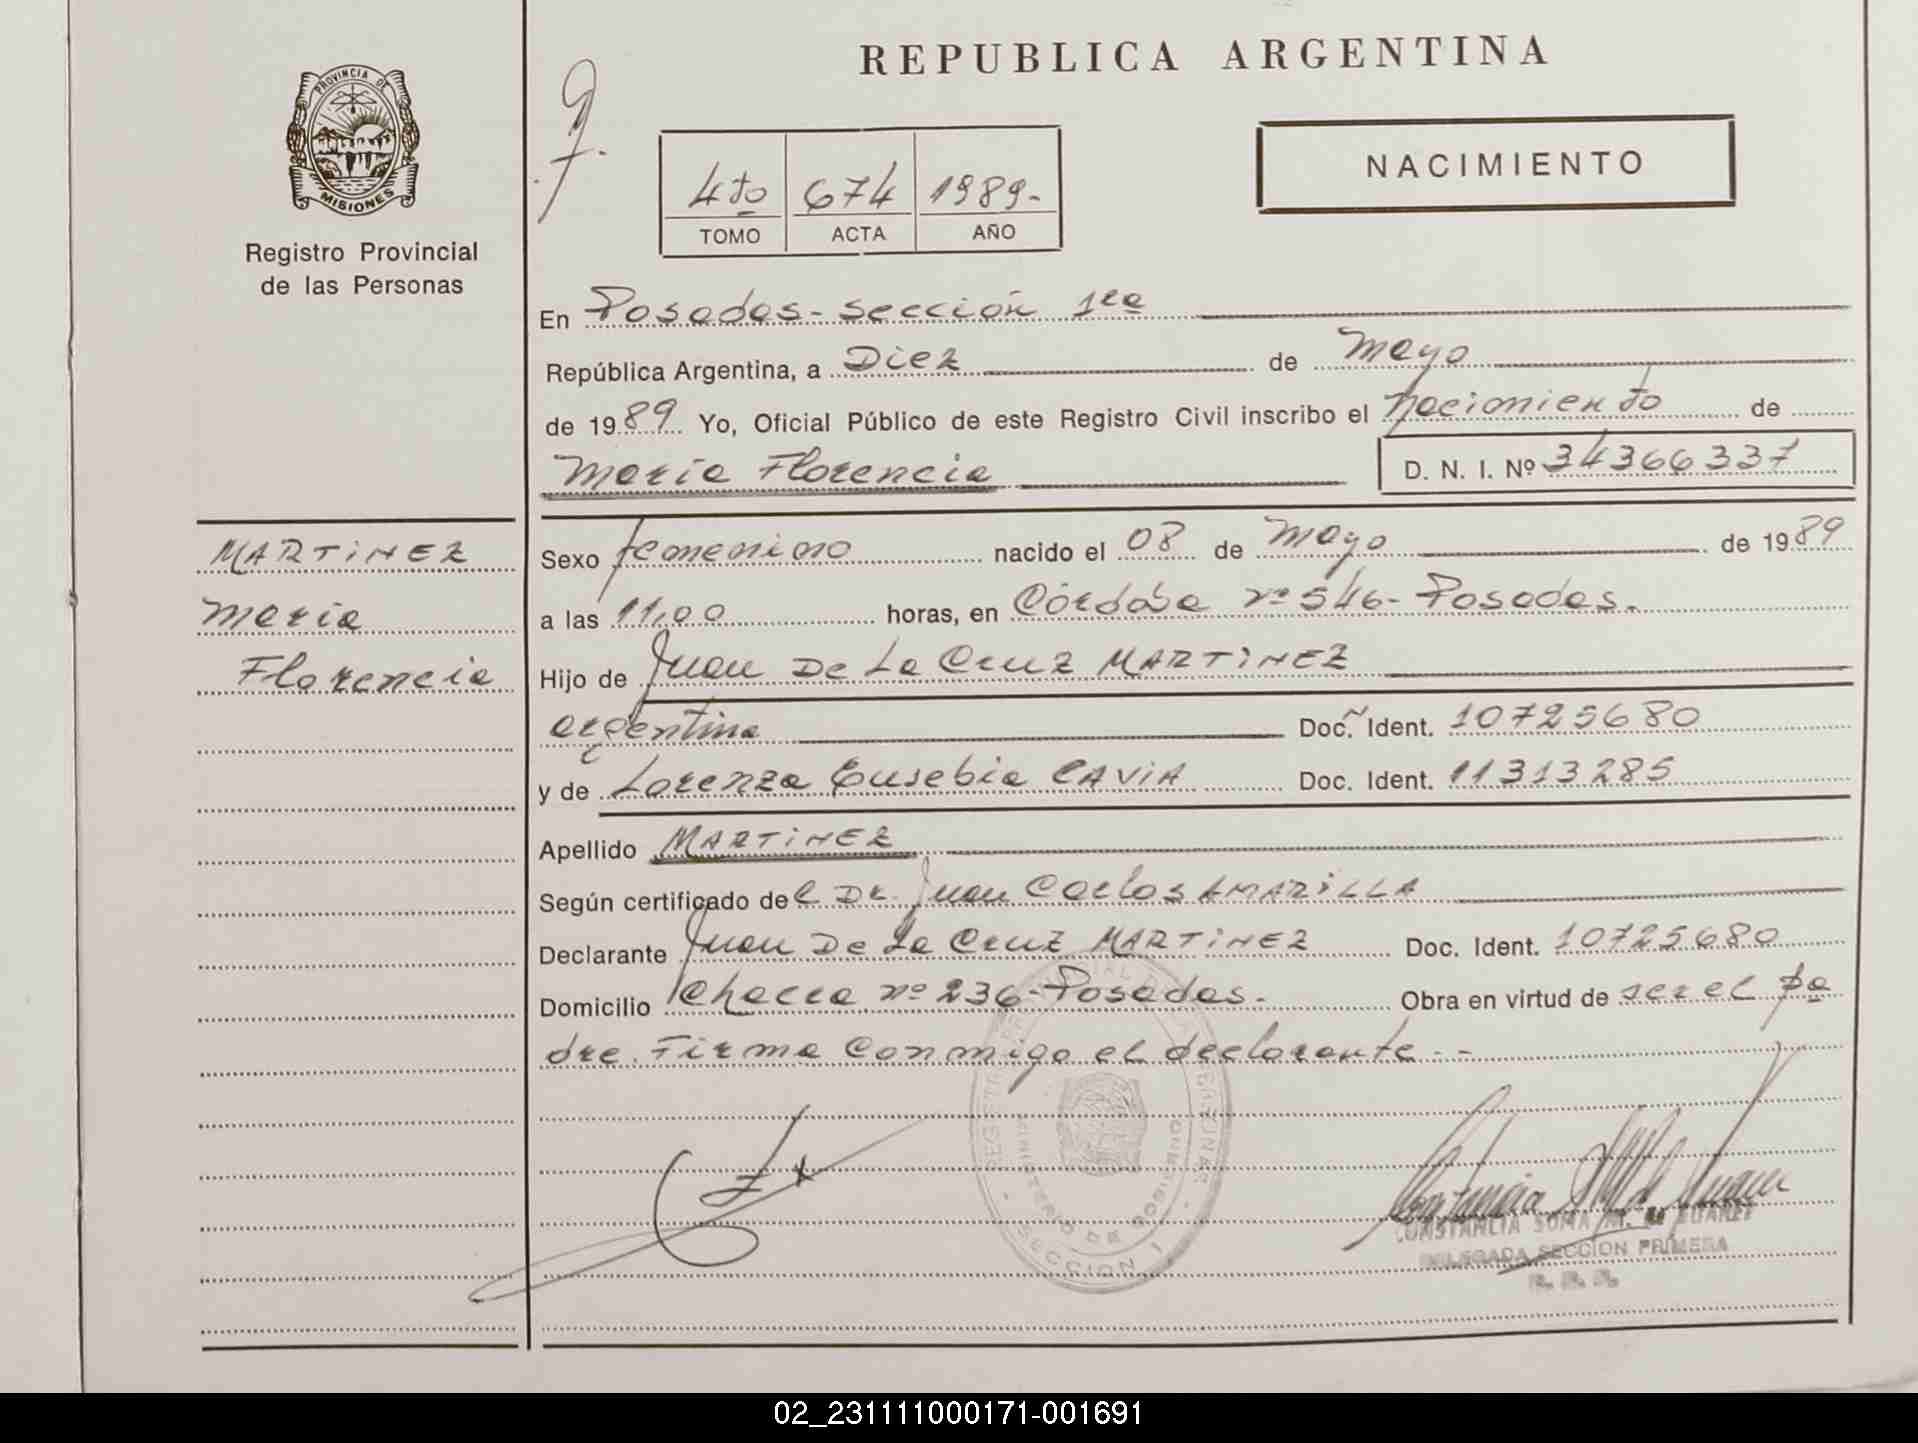 REPUBLICA ARGENTINA
PROVINCIA DE
MISIONES
Registro Provincial
de las Personas
4to 674 1989-
TOMO ACTA AÑO
NACIMIENTO
En Posadas - sección 1ra
República Argentina, a Diez de Mayo
de 1989 Yo, Oficial Público de este Registro Civil inscribo el nacimiento de
María Florencia D. N. I. Nº 34366337
MARTINEZ
María
Florencia
Sexo femenino nacido el 08 de Mayo de 1989
a las 11,00 horas, en Córdoba nº 546 - Posadas.
Hijo de Juan De La Cruz MARTINEZ
argentina Doc. Ident. 10725680
y de Lorenza Eusebia CAVIA Doc. Ident. 11313285
Apellido MARTINEZ
Según certificado del Dr. Juan Carlos AMARILLA
Declarante Juan De La Cruz MARTINEZ Doc. Ident. 10725680
Domicilio Chacra nº 236 - Posadas. Obra en virtud de ser el pa
dre. Firma conmigo el declarante.-
MINISTERIO DE GOBIERNO
SECCION 1
CONSTANCIA SONIA M. SUAREZ
DELEGADA SECCION PRIMERA
02_231111000171-001691